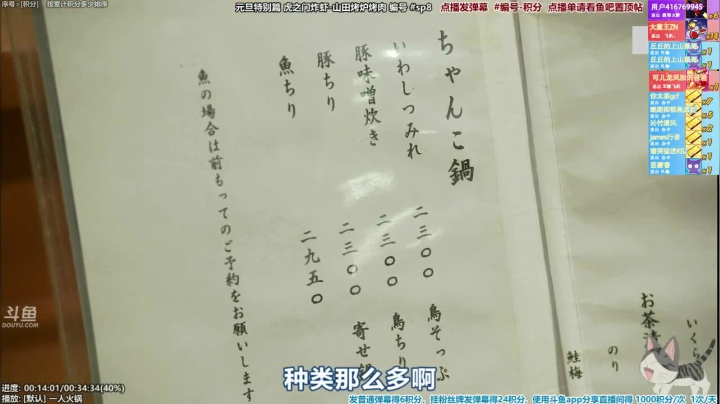 序号 - [积分] 按累计积分多少排序
元旦特别篇 虎之门炸虾-山田烤炉烤肉 编号 #sp8
点播发弹幕 #编号-积分 点播单请看鱼吧置顶帖
用户416769945
大魔王ZN
丘丘的上山
丘丘的上山
james行者
ちゃんこ鍋
いわしつみれ 二三〇〇
豚味噌炊き 二三〇〇
豚ちり 二三〇〇
魚ちり 二九五〇
魚の場合は前もってのご予約をお願いします
鳥そっぷ
鳥ちり
寄せ
お茶漬
いくら
のり
鮭
梅
斗鱼
DOUYU.COM
种类那么多啊
进度: 00:14:01/00:34:34(40%)
播放: [默认] 一人火锅
发普通弹幕得6积分，挂粉丝牌发弹幕得24积分，使用斗鱼app分享直播间得 1000积分/次 1次/天